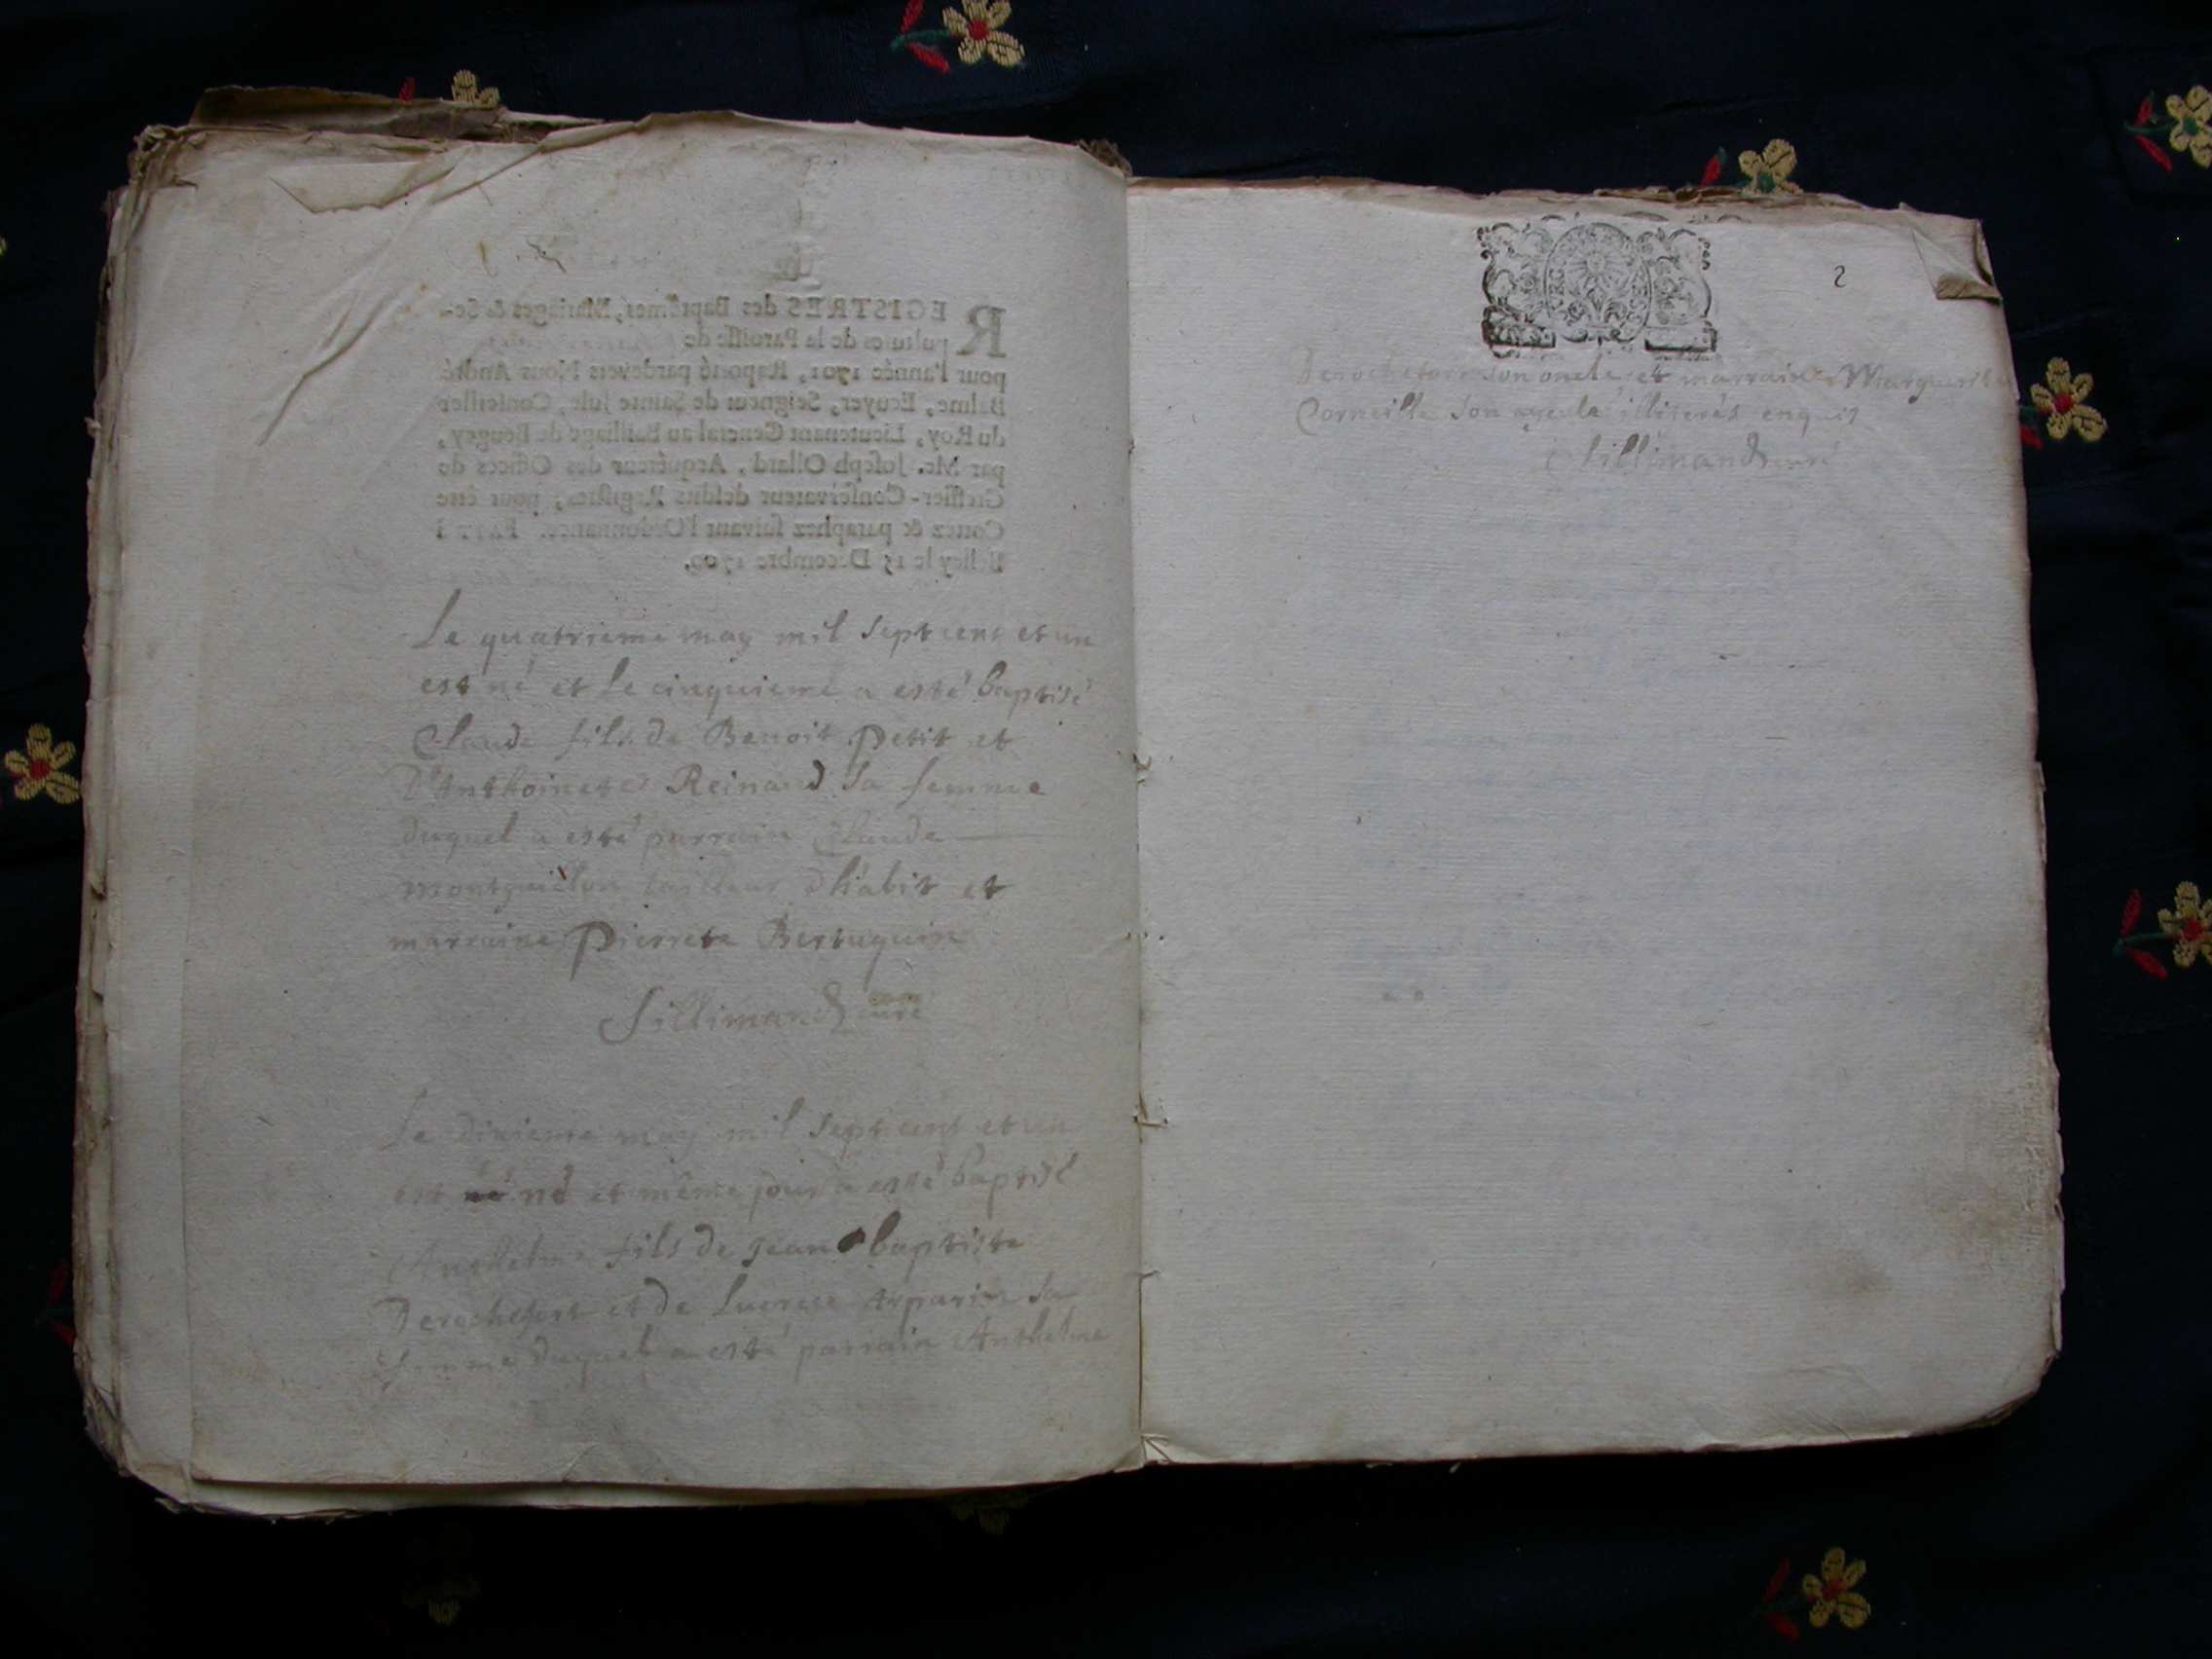 REGISTRES des Baptêmes, Mariages & Se-
pultures de la Paroisse de
pour l'année 1701, Raporté pardevers Nous André
Balme, Ecuyer, Seigneur de Sainte Jule, Conseiller
du Roy, Lieutenant General au Bailliage de Bougey,
par Me. Joseph Ollard, Acquéreur des Offices de
Greffier-Conservateur desdits Registres, pour être
Cottez & paraphez suivant l'Ordonnance. FAIT à
Belley le 15 Decembre 1700.
Le quatrieme may mil sept cent et un
est né et le cinquieme a esté baptisé
Claude fils de Benoit Petit et
D'Anthoinete Reinard sa femme
duquel a esté parrain Claude
tailleur d'habit et
marraine Pierrete Bertuquin
Sillimand curé
Le dixieme may mil sept cent et un
est né né et même jour a esté baptisé
Anthelme fils de Jean baptiste
Derochefort et de Lucrece sa
femme duquel a esté parrain Anthelme
2
Derochefort son oncle et marraine Marguerite
Corneille son ayeule illiterés enquis
Sillimand curé